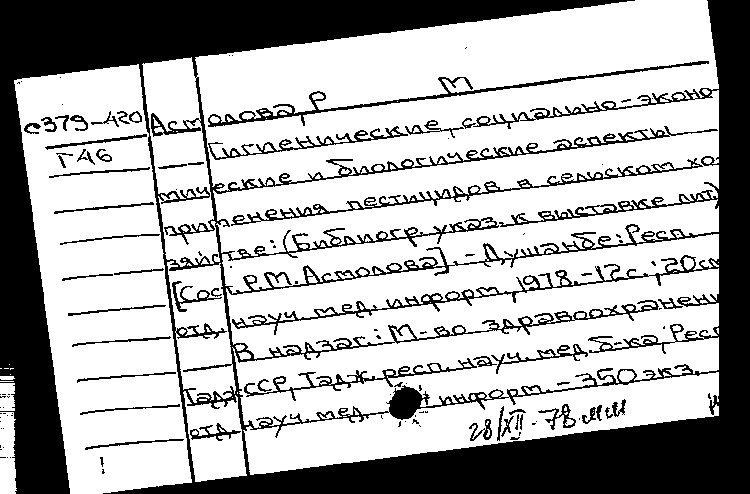 с379-420 Асмолова, Р М
Г46 Гигиенические, социально-эконо-
мические и биологические аспекты
применения пестицидов в сельском хо-
зяйстве: (Библиогр. указ. к выставке лит.)
[Сост. Р.М. Асмолова]. - Душанбе: Респ.
отд. науч. мед. информ., 1978. - 12 с.; 20 см
В надзаг.: М-во здравоохранени
ТаджССР, Тадж. респ. науч. мед. б-ка, Респ
отд. науч. мед. информ. - 350 экз.
28/XII-78